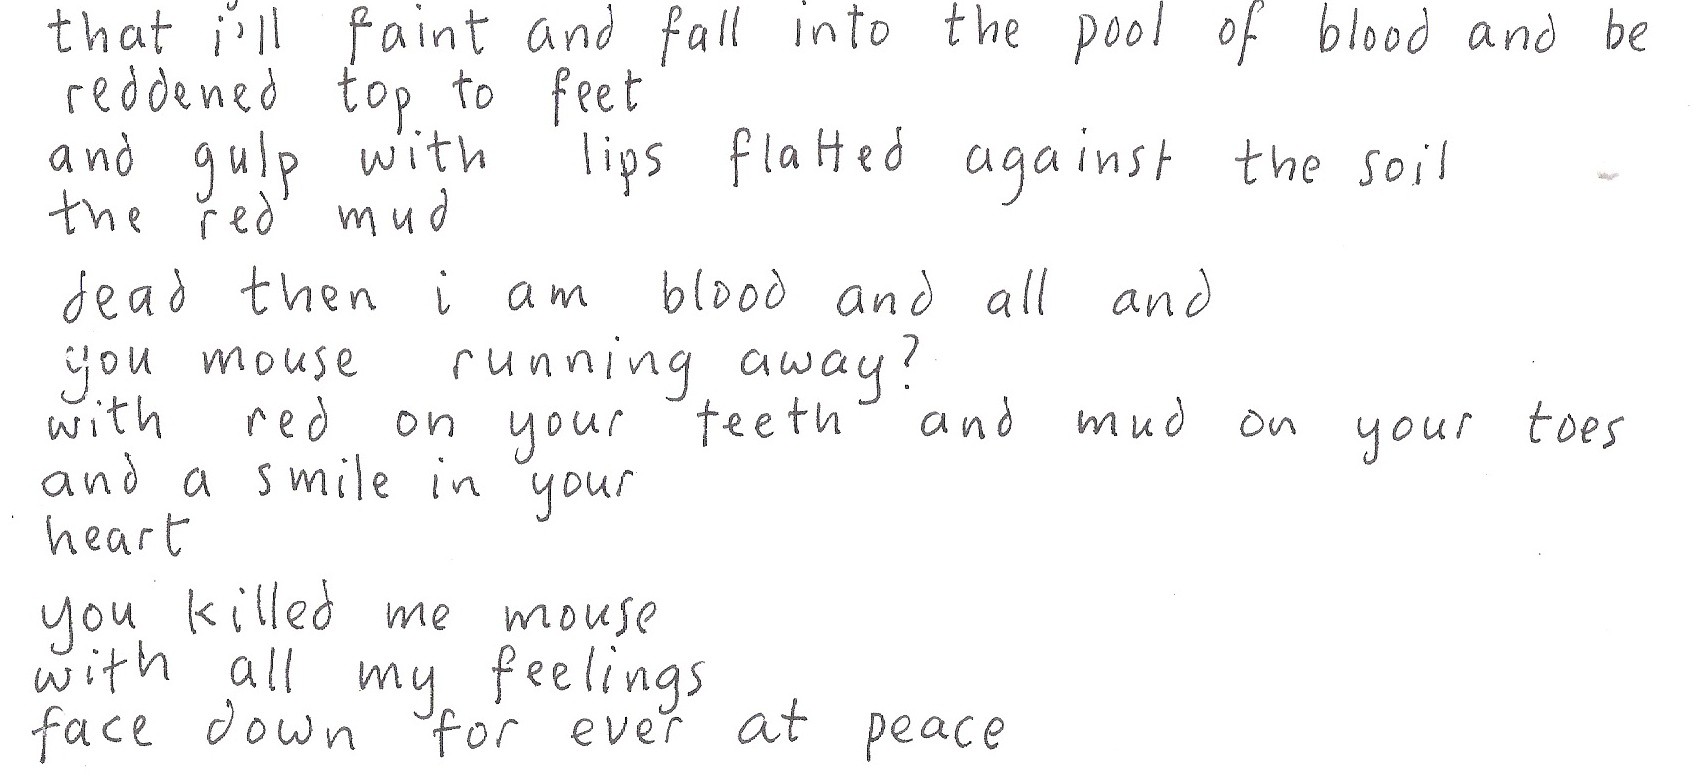 that i'll faint and fall into the pool of blood and be
reddened top to feet
and gulp with lips flatted against the soil
the red mud
dead then i am blood and all and
you mouse running away?
with red on your teeth and mud on your toes
and a smile in your
heart
you killed me mouse
with all my feelings
face down for ever at peace